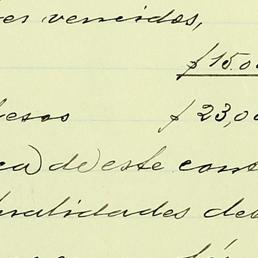 es vencidos,
$15.0
besos $23,00
ca) de) este cons
eralidades des